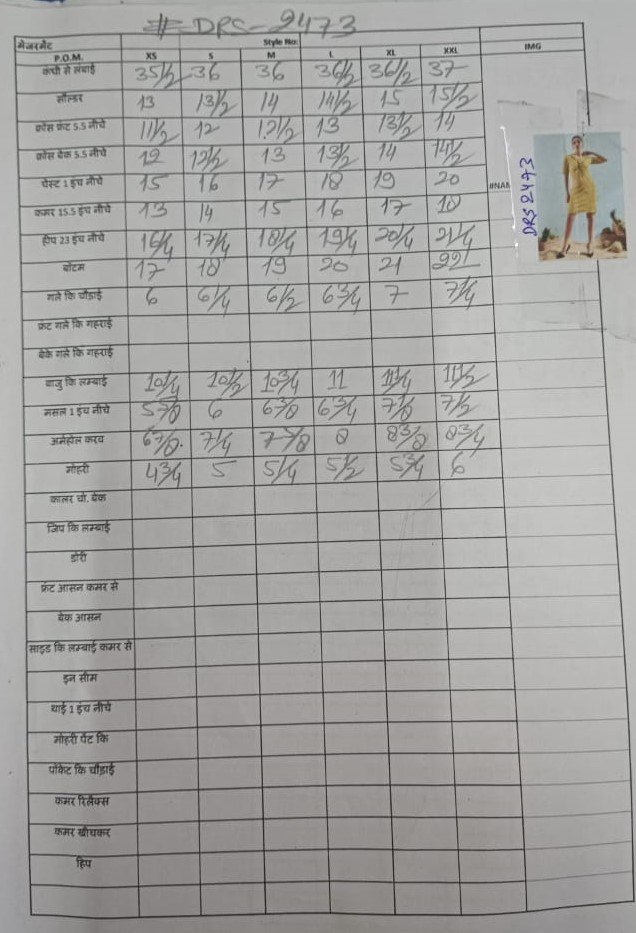 # DRS-2473
मेजरमेंट Style No:
P.O.M. XS S M L XL XXL IMG
कंधी से लंबाई 35 1/2 36 36 36 1/2 36 1/2 37
सौल्डर 13 13 1/2 14 14 1/2 15 15 1/2
क्रोस फ्रंट 5.5 नीचे 11 1/2 12 12 1/2 13 13 1/2 14
क्रोस बेक 5.5 नीचे 12 12 1/2 13 13 1/2 14 14 1/2
चेस्ट 1 इंच नीचे 15 16 17 18 19 20
#NAM
DRS 2473
कमर 15.5 इंच नीचे 13 14 15 16 17 18
हीप 23 इंच नीचे 16 1/4 17 1/4 18 1/4 19 1/4 20 1/4 21 1/4
बॉटम 17 18 19 20 21 22
गले कि चौड़ाई 6 6 1/4 6 1/2 6 3/4 7 7 1/4
फ्रंट गले कि गहराई
बेक गले कि गहराई
बाजु कि लम्बाई 10 1/4 10 1/2 10 3/4 11 11 1/4 11 1/2
मसल 1 इंच नीचे 5 7/8 6 6 3/8 6 3/4 7 1/8 7 1/2
अर्महोल करव 6 7/8 7 1/4 7 5/8 8 8 3/8 8 3/4
मोहरी 4 3/4 5 5 1/4 5 1/2 5 3/4 6
कालर चो. बेक
जिप कि लम्बाई
डोरी
फ्रंट आसन कमर से
बेक आसन
साइड कि लम्बाई कमर से
इन सीम
थाई 1 इंच नीचे
मोहरी पेंट कि
पॉकेट कि चौड़ाई
कमर रिलैक्स
कमर खीचकर
हिप